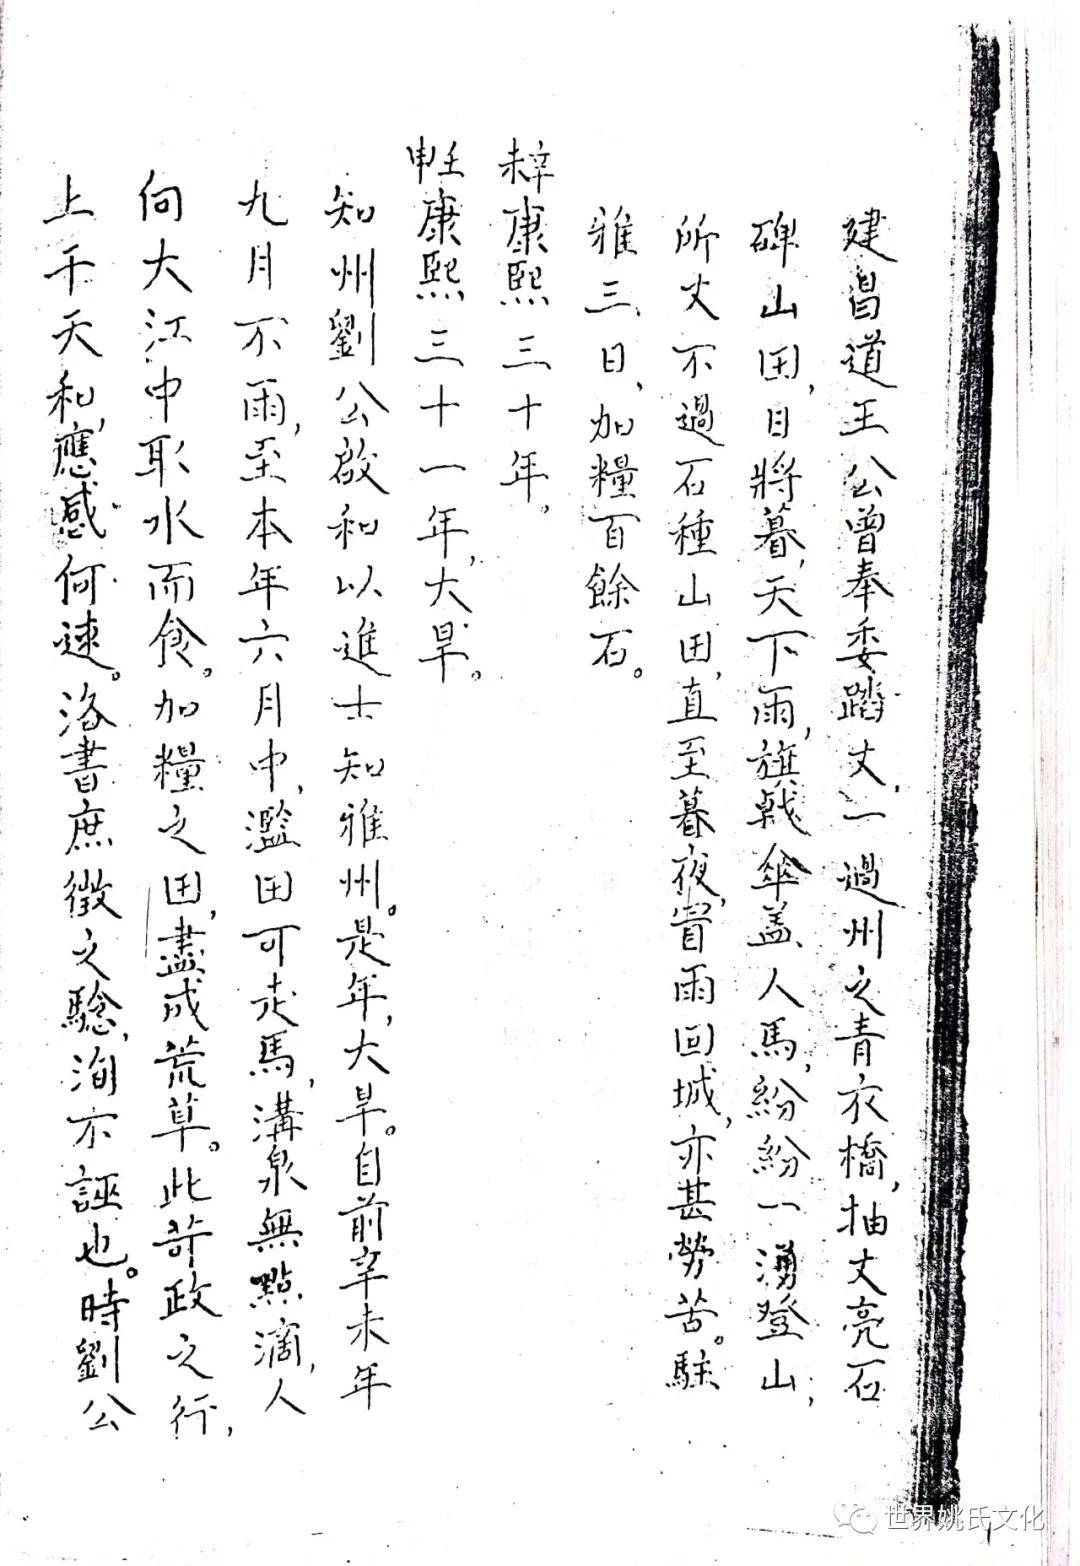 建昌道王公曾奉委踏丈,一過州之青衣橋,抽丈亮石
碑山田,日將暮,天下雨,旗戟傘盖人馬,紛紛一湧登山;
所丈不過石種山田,直至暮夜,冒雨回城,亦甚勞苦。駐
雅三日,加糧百餘石。
辛未康熙三十年。
壬申康熙三十一年,大旱。
知州劉公啟和以進士知雅州。是年,大旱。自前辛未年
九月不雨,至本年六月中,濫田可走馬,溝泉無點滴,人
向大江中取水而食。加糧之田,盡成荒草。此苛政之行,
上干天和,應感何速。洛書庶徵之驗,洵不誣也。時劉公
世界姚氏文化